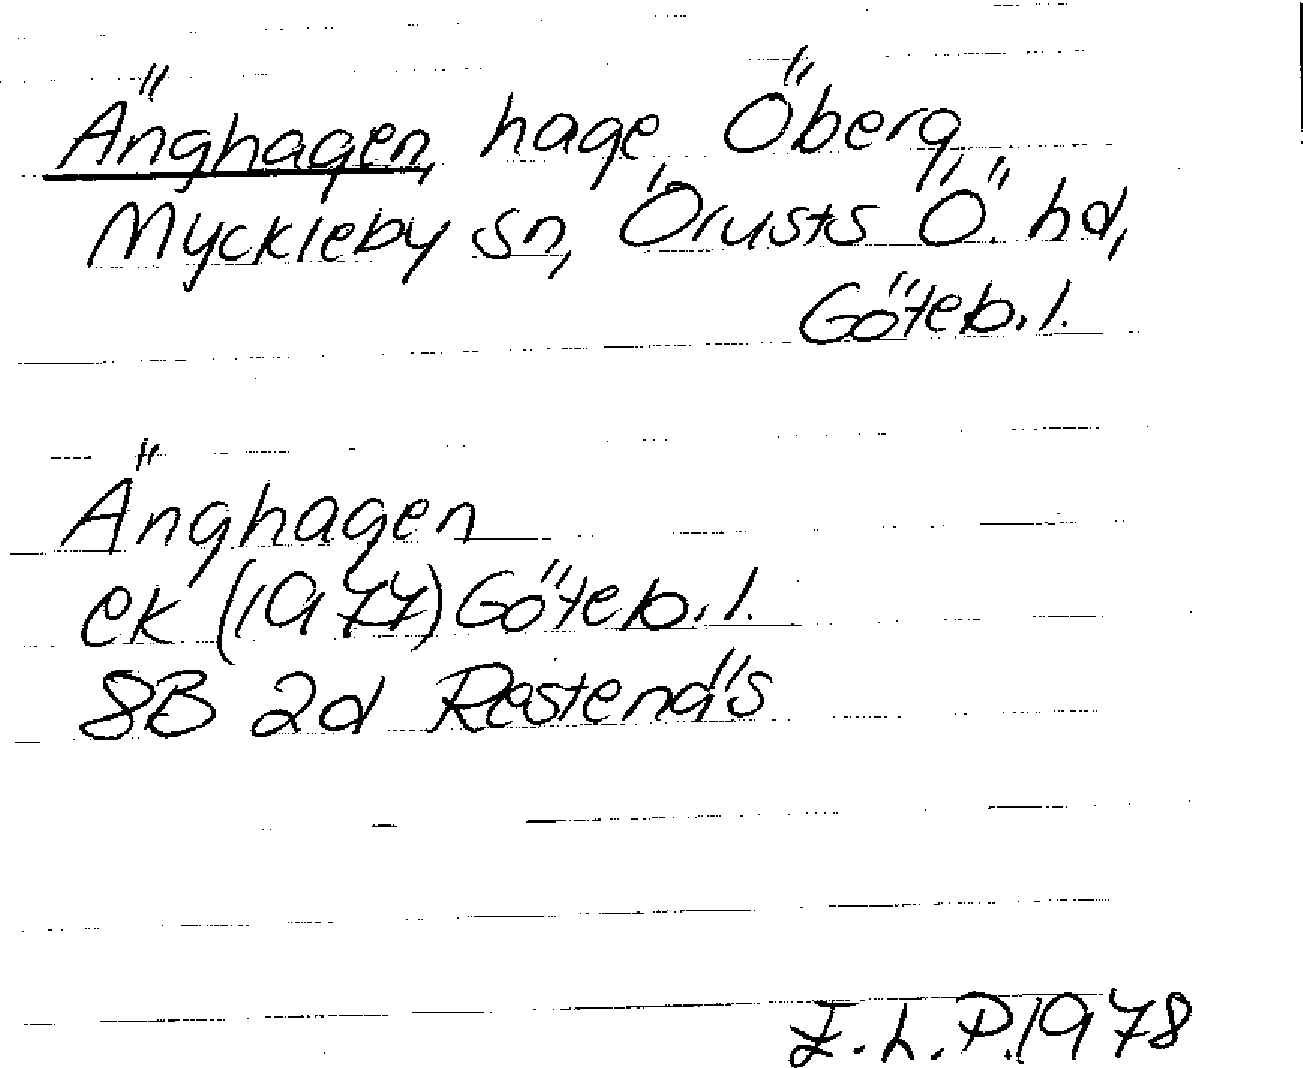 Änghagen, hage, Öberg,
Myckleby sn, Örusts Ö. hd,
Göteb. l.
Änghagen
ek (1977) Göteb. l.
8B 2d Restenäs
I. L. P. 1978